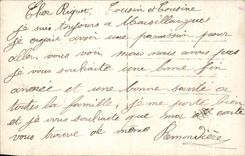 Cher Riquet, Cousin et Cousine
Je suis toujours a Marsillargues
Je croyais avoir une permission pour
aller vous voir mais nous avons pas
Je vous souhaite une bonne fin
année et une bonne santé a
toutes la famille, je me porte bien
et je vous souhaite que ma carte
vous trouve de meme